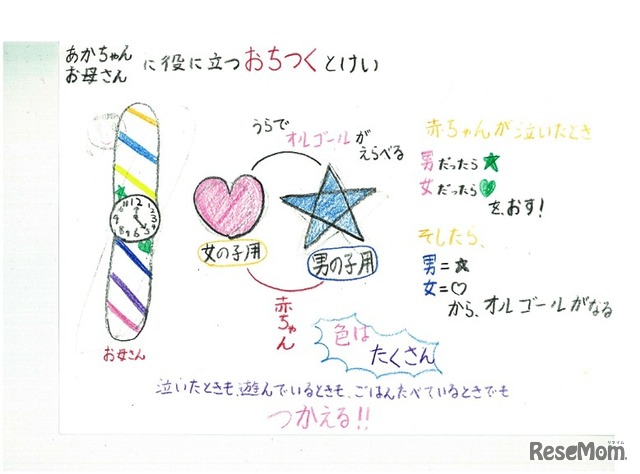 あかちゃん
お母さん
に役に立つおちつくとけい
うらで
オルゴールが
えらべる
女の子用
男の子用
赤ちゃん
お母さん
12
1
2
3
4
5
6
7
8
9
赤ちゃんが泣いたとき
男だったら★
女だったら♥
を、おす!
そしたら、
男=★
女=♡
から、オルゴールがなる
色は
たくさん
泣いたときも、遊んでいるときも、ごはんたべているときでも
つかえる!!
リセマム
ReseMom.